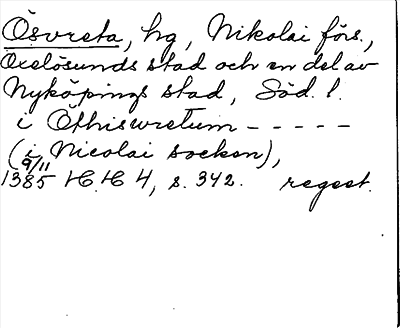 Ösvreta, hg, Nikolai förs.,
Oxelösunds stad och en del av
Nyköpings stad, Söd. l.
i Öthiswretum - - - - -
(i Nicolai socken),
9/11
1385 HC.HC 4, s. 342. regest.